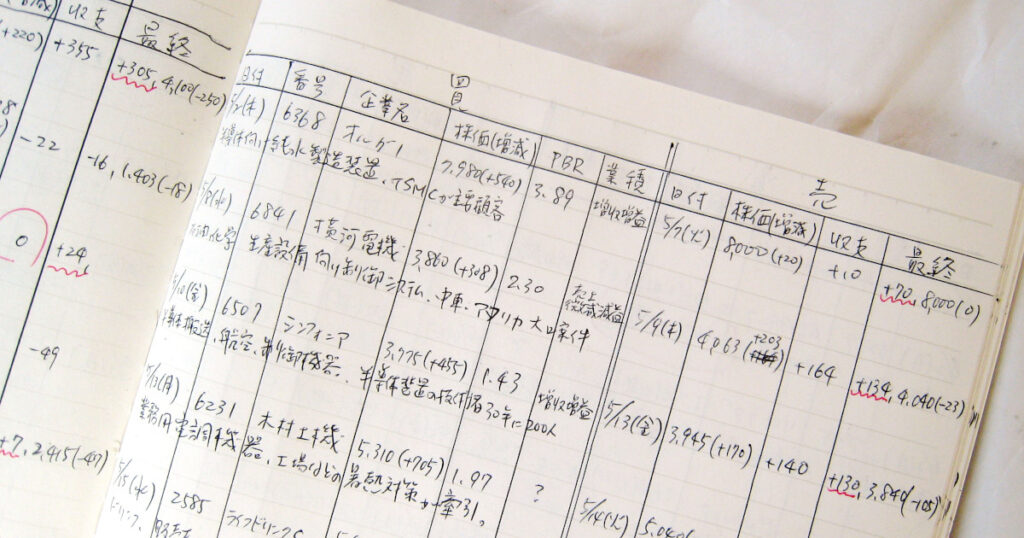 (+220) +355 最終
+305, 4,100(-250)
-22
-16, 1.403(-18)
0
+24
-49
+7, 2,415(-47)
買
売
日付 番号 企業名 株価(増減) PBR 業績 日付 株価(増減) 収支 最終
5/2(木) 6368 オルガノ 7.980(+540) 3.89 増収増益 5/7(火) 8,000(+20) +10 +70, 8,000(0)
半導体向け純水製造装置、TSMCが主要顧客
5/8(水) 6841 横河電機 3,860(+308) 2.30 売上微減減益 5/9(木) 4,063(+203) +164 +134, 4.040(-23)
石油化学 生産設備向け制御システム、中東、アフリカ大口案件
5/10(金) 6507 シンフォニア 3,775(+455) 1.43 増収増益 5/13(金) 3,945(+170) +140 +130, 3,840(-105)
半導体搬送、航空、制御機器、半導体装置の技術者30年に200人
5/13(月) 6231 木村工機 5,310(+705) 1.97 ? 5/14(火) 5.040
業務用空調機器、工場などの暑熱対策が牽引。
5/15(水) 2585 ライフドリンク